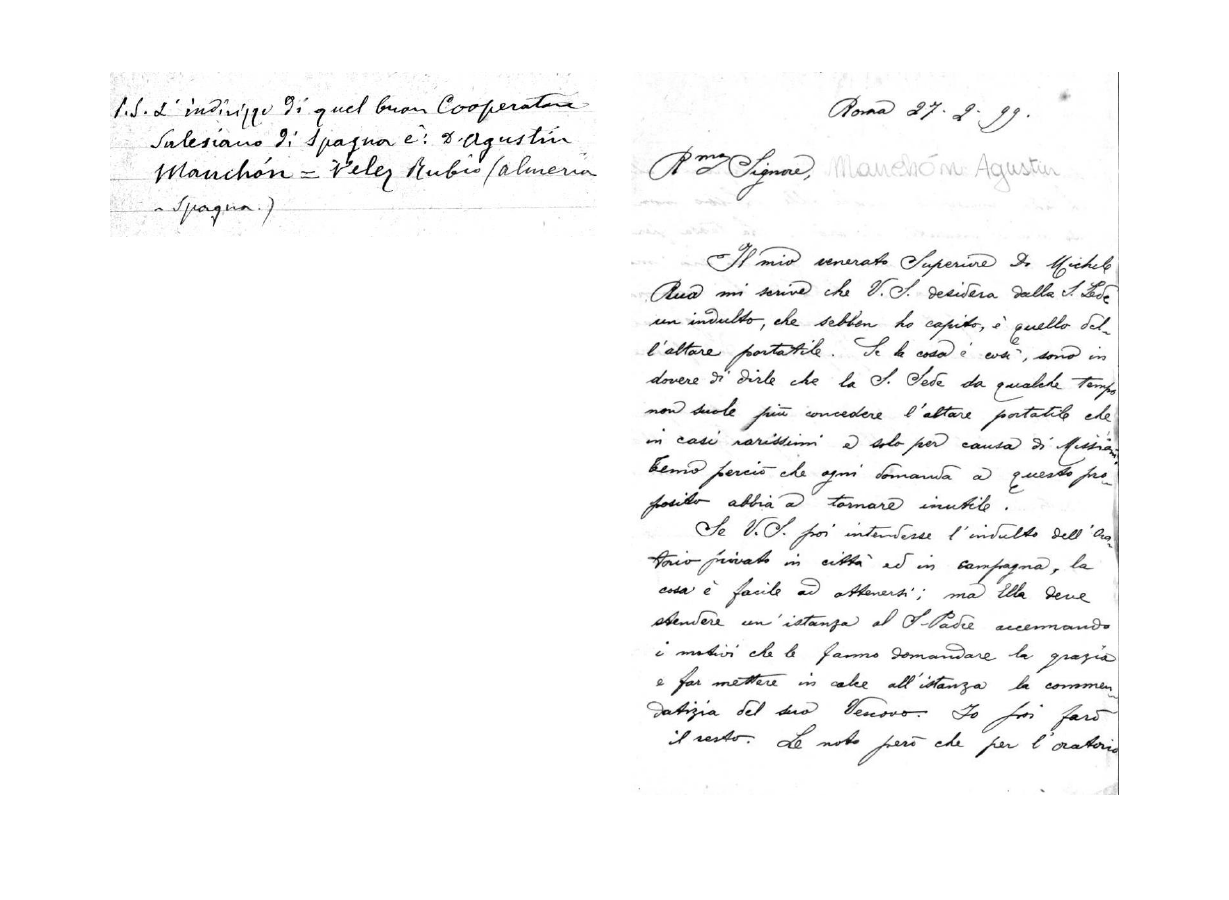 P.S. L'indirizzo di quel buon Cooperatore
Salesiano di Spagna è: D. Agustín
Manchón = Velez Rubio (Almeria
- Spagna.)
Roma 27. 2. 99.
Rmo Signore, Manchón Agustin
Il mio venerato Superiore D. Michele
Rua mi scrive che V. S. desidera dalla S. Sede
un indulto, che sebben ho capito, è quello del-
l'altare portatile. Se la cosa è così, sono in
dovere di dirle che la S. Sede da qualche tempo
non suole più concedere l'altare portatile che
in casi rarissimi e solo per causa di Missioni
Temo perciò che ogni domanda a questo pro-
posito abbia a tornare inutile.
Se V. S. poi intendesse l'indulto dell'Ora-
torio privato in città ed in campagna, la
cosa è facile ad ottenersi; ma Ella deve
stendere un'istanza al S. Padre accennando
i motivi che le fanno domandare la grazia
e far mettere in calce all'istanza la commen-
datizia del suo Vescovo. Io poi farò
il resto. Le noto però che per l'oratorio